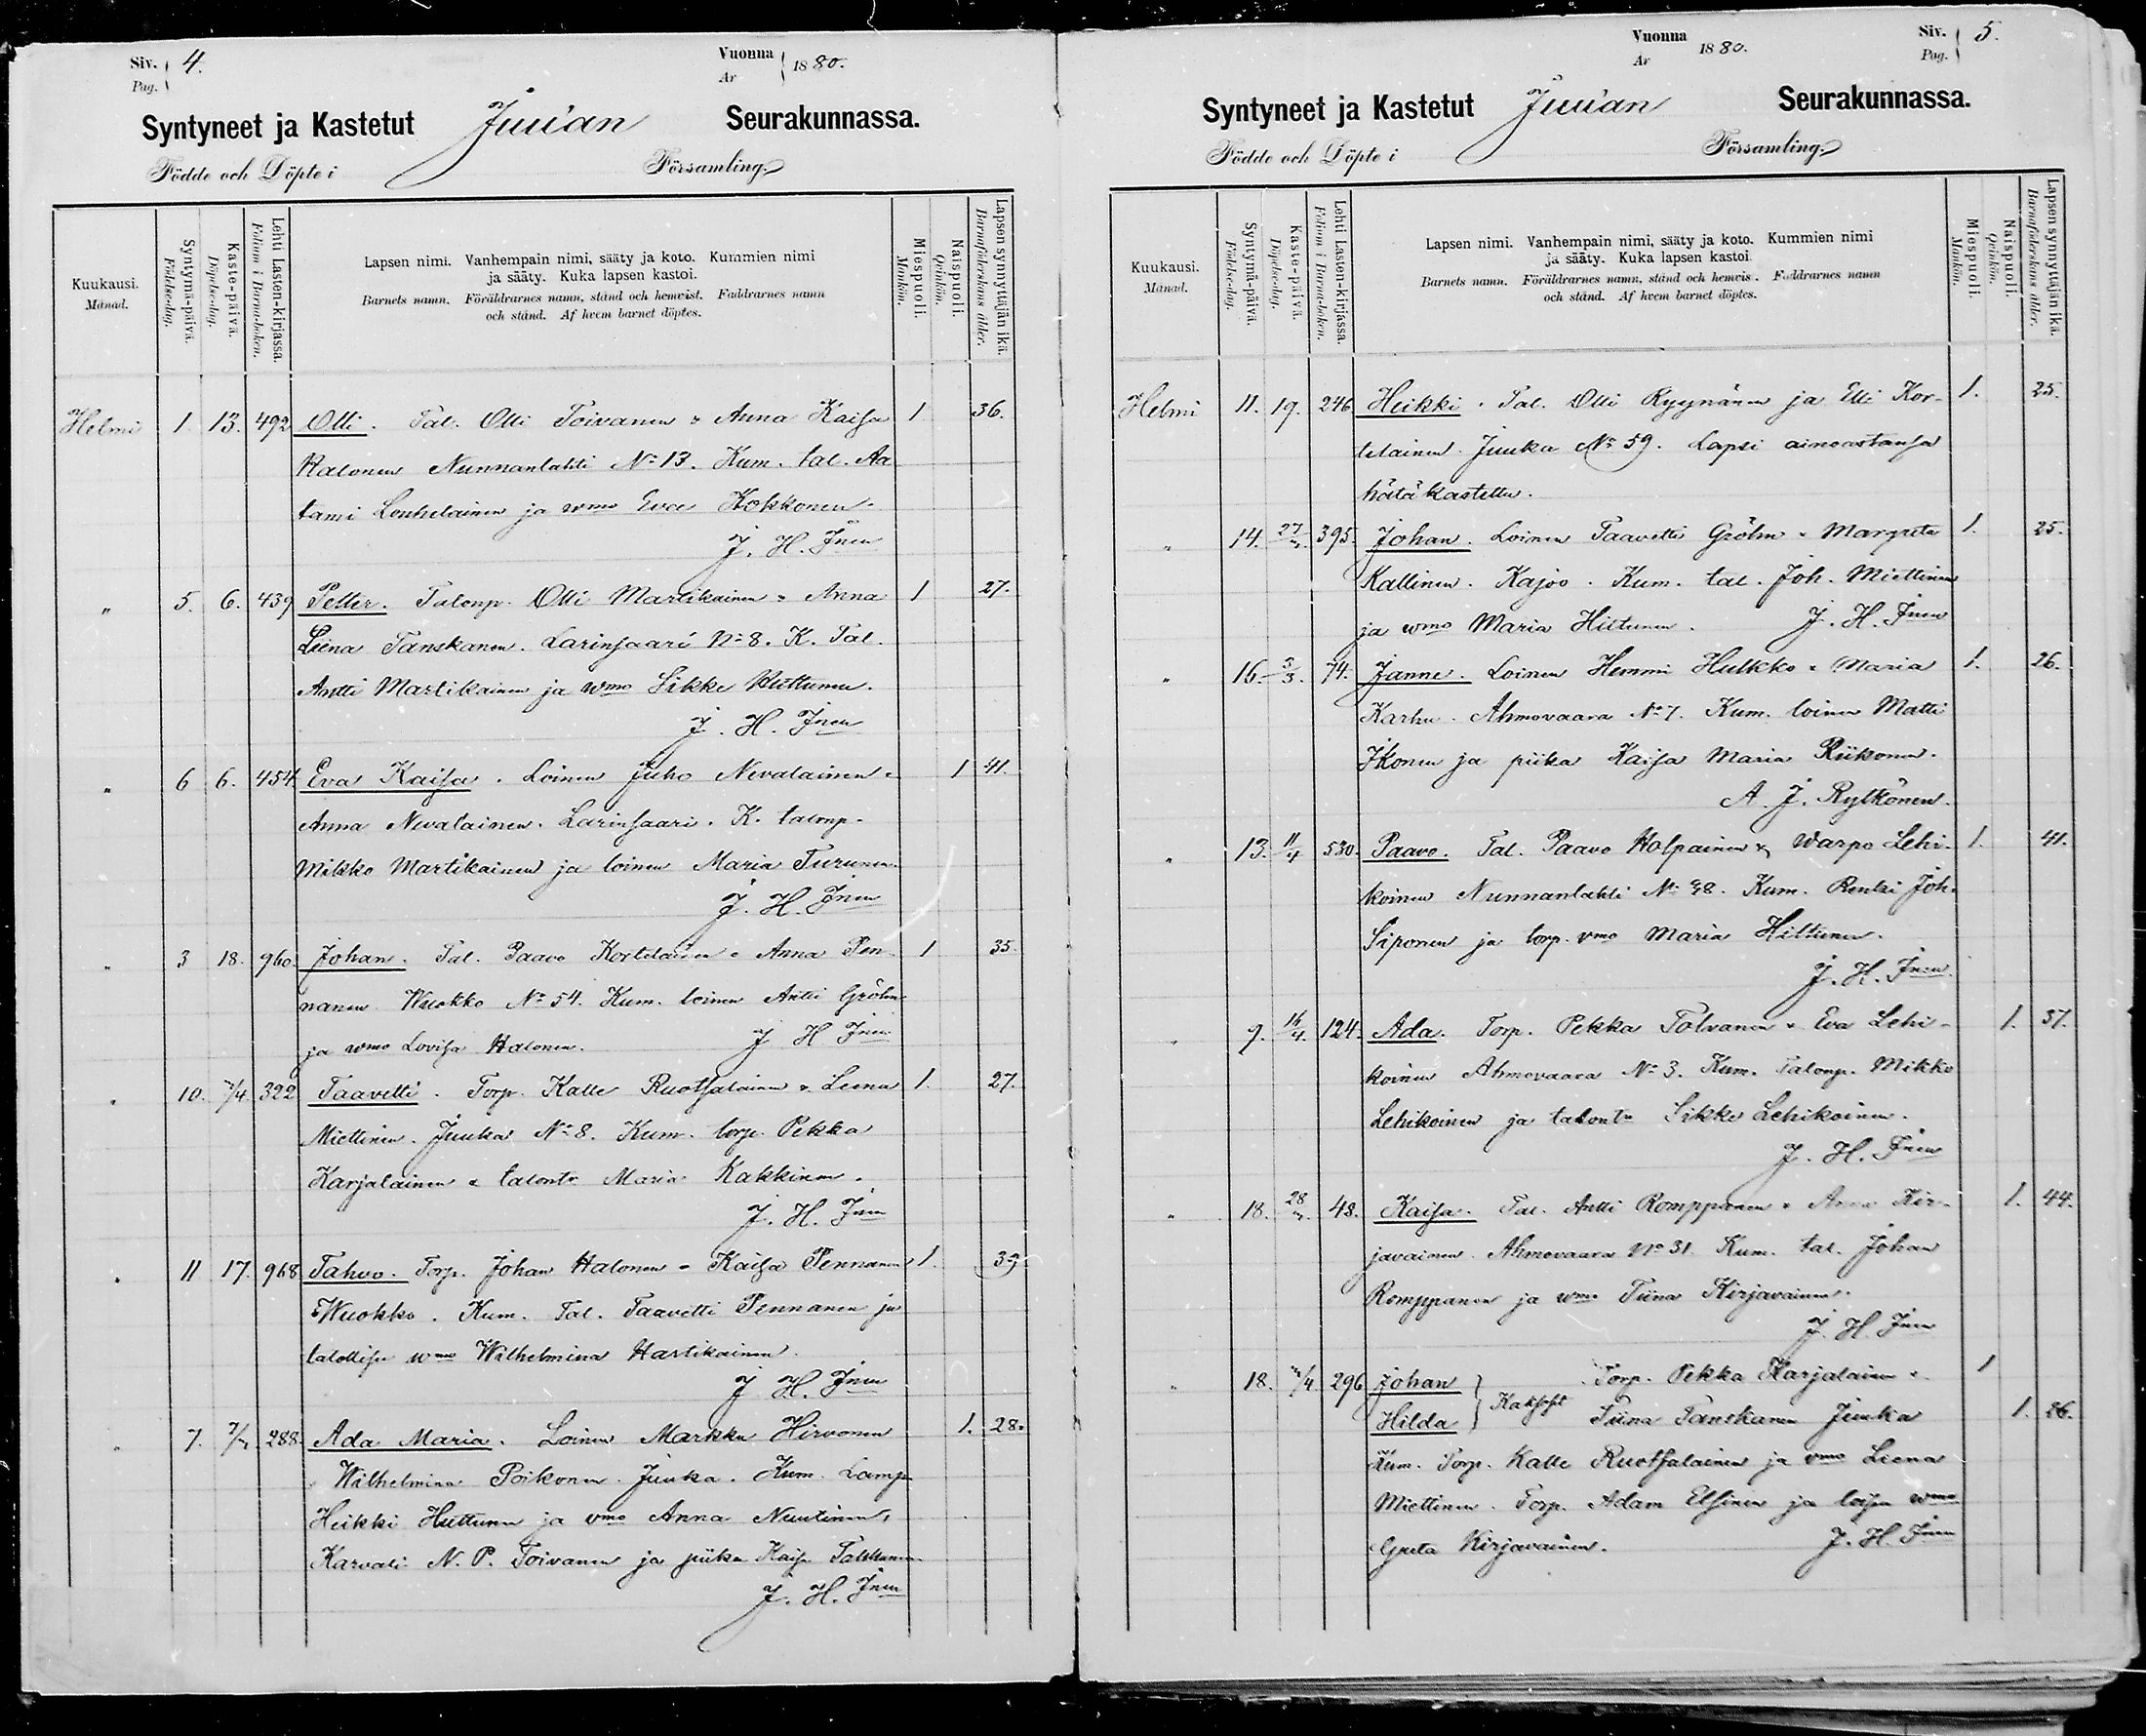 Siv. 4.
Pag.
Vuonna 1880.
Ar
Syntyneet ja Kastetut Juuan Seurakunnassa.
Födde och Döpte i Församling.
Kuukausi.
Månad.
Syntymä-päivä.
Födelse-dag.
Kaste-päivä.
Döpelse-dag.
Lehti Lasten-kirjassa.
Folium i Barna-boken.
Lapsen nimi. Vanhempain nimi, sääty ja koto. Kummien nimi
ja sääty. Kuka lapsen kastoi.
Barnets namn. Föräldrarnes namn, stånd och hemvist. Faddrarnes namn
och stånd. Af hvem barnet döptes.
Miespuoli.
Mankön.
Naispuoli.
Qvinkön.
Lapsen synnyttäjän ikä.
Barnaföderskans ålder.
Helmi 1. 13. 492 Olli. Tal. Olli Toivanen & Anna Kaisa 1 36.
Halonen Nunnanlahti No 13. Kum. tal. Aa
tami Louhelainen ja wmo Eva Kokkonen.
J. H. Jnen
" 5. 6. 439 Petter. Talonp. Olli Martikainen & Anna 1 27.
Liena Tanskanen. Larinsaari No 8. K. Tal.
Antti Martikainen ja wmo Sikke Huttunen.
J. H. Jnen
" 6 6. 454. Eva Kaisa. Loinen Juho Nevalainen & 1 41.
Anna Nevalainen. Larinsaari. K. talonp.
Mikko Martikainen ja loinen Maria Turunen.
J. H. Jnen
" 3 18. 960. Johan. Tal. Paavo Kortelainen & Anna Pen- 1 35.
nanen Wuokko No 54. Kum. loinen Antti Gröhn
ja wmo Lovisa Halonen. J H Jnen
" 10. /4. 322 Taavetti. Torp. Kalle Ruotsalainen & Leena 1. 27.
Miettinen. Juuka No 8. Kum. torp. Pekka
Karjalainen & talontr Maria Kakkinen.
J. H. Jnen
" 11 17. 968 Tahvo. Torp. Johan Halonen & Kaisa Pennanen 1. 39.
Wuokko. Kum. Tal. Taavetti Pennanen ja
talollisen wmo Wilhelmina Hartikainen.
J. H. Jnen
" 7. 288. Ada Maria. Loinen Markku Hirvonen 1. 28.
& Wilhelmina Poikonen. Juuka. Kum. Lamp.
Heikki Huttunen ja vmo Anna Nuutinen,
Karvari N. P. Toivanen ja piika Kaisa
J. H. Jnen
Vuonna 1880.
Ar
Siv. 5.
Pag.
Syntyneet ja Kastetut Juuan Seurakunnassa.
Födde och Döpte i Församling.
Kuukausi.
Månad.
Syntymä-päivä.
Födelse-dag.
Kaste-päivä.
Döpelse-dag.
Lehti Lasten-kirjassa.
Folium i Barna-boken.
Lapsen nimi. Vanhempain nimi, sääty ja koto. Kummien nimi
ja sääty. Kuka lapsen kastoi.
Barnets namn. Föräldrarnes namn, stånd och hemvis. Faddrarnes namn
och stånd. Af hvem barnet döptes.
Miespuoli.
Mankön.
Naispuoli.
Qvinkön.
Lapsen synnyttäjän ikä.
Barnaföderskans ålder.
Helmi 11. 19. 246 Heikki. Tal. Olli Ryynänen ja Elli Kor- 1. 25.
telainen. Juuka No 59. Lapsi ainoastansa
hätäkastettu.
" 14. 27 395. Johan. Loinen Taavetti Gröhn & Margreta 1. 25.
Kallinen. Kajoo. Kum. tal. Joh. Miettinen
ja wmo Maria Hiltunen. J. H. Jnen
" 16. 5/3. 74. Janne. Loinen Hemmi Hulkko & Maria 1. 26.
Karhu. Ahmovaara No 7. Kum. loinen Matti
Ikonen ja piika Kaisa Maria Riikonen.
A. J. Rytkönen.
" 13. 11/4 530. Paavo. Tal. Paavo Holpainen & Warpo Lehi- 1. 41.
koinen Nunnanlahti No 28. Kum. Renki Joh.
Siponen ja torp. vmo Maria Hiltunen.
J. H. Jnen
" 9. /4. 124. Ada. Torp. Pekka Tolvanen & Eva Lehi- 1. 37.
koinen Ahmovaara No 3. Kum. Talonp. Mikko
Lehikoinen ja talontr Sikke Lehikoinen.
J. H. Jnen
" 18. 28 48. Kaisa. Tal. Antti Romppanen & Anna Kir- 1. 44.
javainen. Ahmovaara No 31. Kum. tal. Johan
Romppanen ja wmo Tiina Kirjavainen.
J. H. Jnen
" 18. /4. 296 Johan } Torp. Pekka Karjalainen & 1
Hilda } Kaksoset Tiina Tanskanen Juuka 1. 26.
Kum. Torp. Kalle Ruotsalainen ja vmo Leena
Miettinen. Torp. Adam Elsinen ja loisen wmo
Greta Kirjavainen. J. H. Jnen